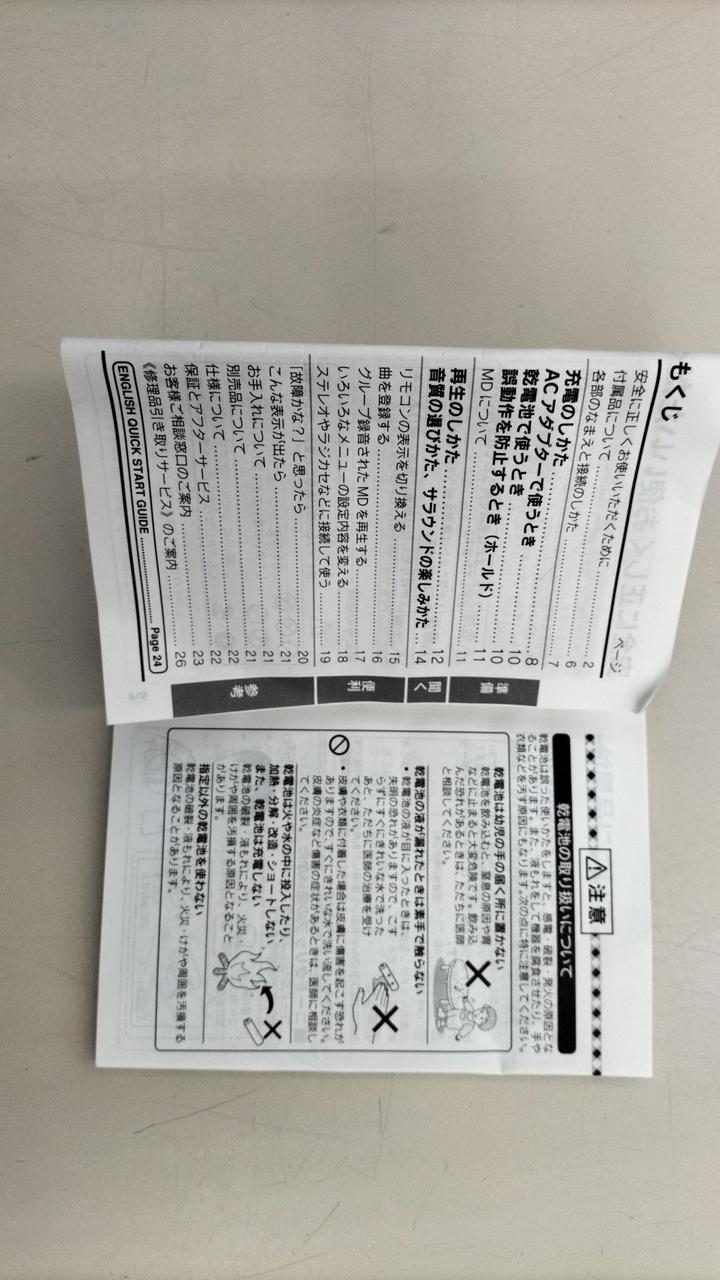 もくじ
ページ
安全に正しくお使いいただくために ..... 2
付属品について ..... 6
各部のなまえと接続のしかた ..... 7
充電のしかた ..... 8
ACアダプターで使うとき ..... 10
乾電池で使うとき ..... 10
誤動作を防止するとき（ホールド） ..... 11
MDについて ..... 11
再生のしかた ..... 12
音質の選びかた、サラウンドの楽しみかた ..... 14
リモコンの表示を切り換える ..... 15
曲を登録する ..... 16
グループ録音されたMDを再生する ..... 17
いろいろなメニューの設定内容を変える ..... 18
ステレオやラジカセなどに接続して使う ..... 19
「故障かな？」と思ったら ..... 20
こんな表示が出たら ..... 21
お手入れについて ..... 21
別売品について ..... 22
仕様について ..... 22
保証とアフターサービス ..... 23
お客様ご相談窓口のご案内
《修理品引き取りサービス》のご案内 ..... 26
ENGLISH QUICK START GUIDE ..... Page 24
準備
聞く
便利
参考
注意
乾電池の取り扱いについて
乾電池は誤った使いかたをしますと、感電・破裂・発火の原因とな
ることがあります。また、液もれをして機器を腐食させたり、手や
衣類などを汚す原因にもなります。次の点に特に注意してください。
乾電池は幼児の手の届く所に置かない
乾電池を飲み込むと、窒息の原因や胃
などに止まると大変危険です。飲み込
んだ恐れがあるときは、ただちに医師
と相談してください。
乾電池の液が漏れたときは素手で触らない
• 乾電池の液が目に入ったときは、
失明の恐れがありますので、こす
らずにすぐにきれいな水で洗った
あと、ただちに医師の治療を受け
てください。
• 皮膚や衣類に付着した場合は皮膚に傷害を起こす恐れが
ありますので、すぐにきれいな水で洗い流してください。
皮膚の炎症など傷害の症状があるときは、医師に相談し
てください。
乾電池は火や水の中に投入したり、
加熱・分解・改造・ショートしない。
また、乾電池は充電しない
乾電池の破裂・液もれにより、火災・
けがや周囲を汚損する原因となること
があります。
指定以外の乾電池を使わない
乾電池の破裂・液もれにより、火災・けがや周囲を汚損する
原因となることがあります。